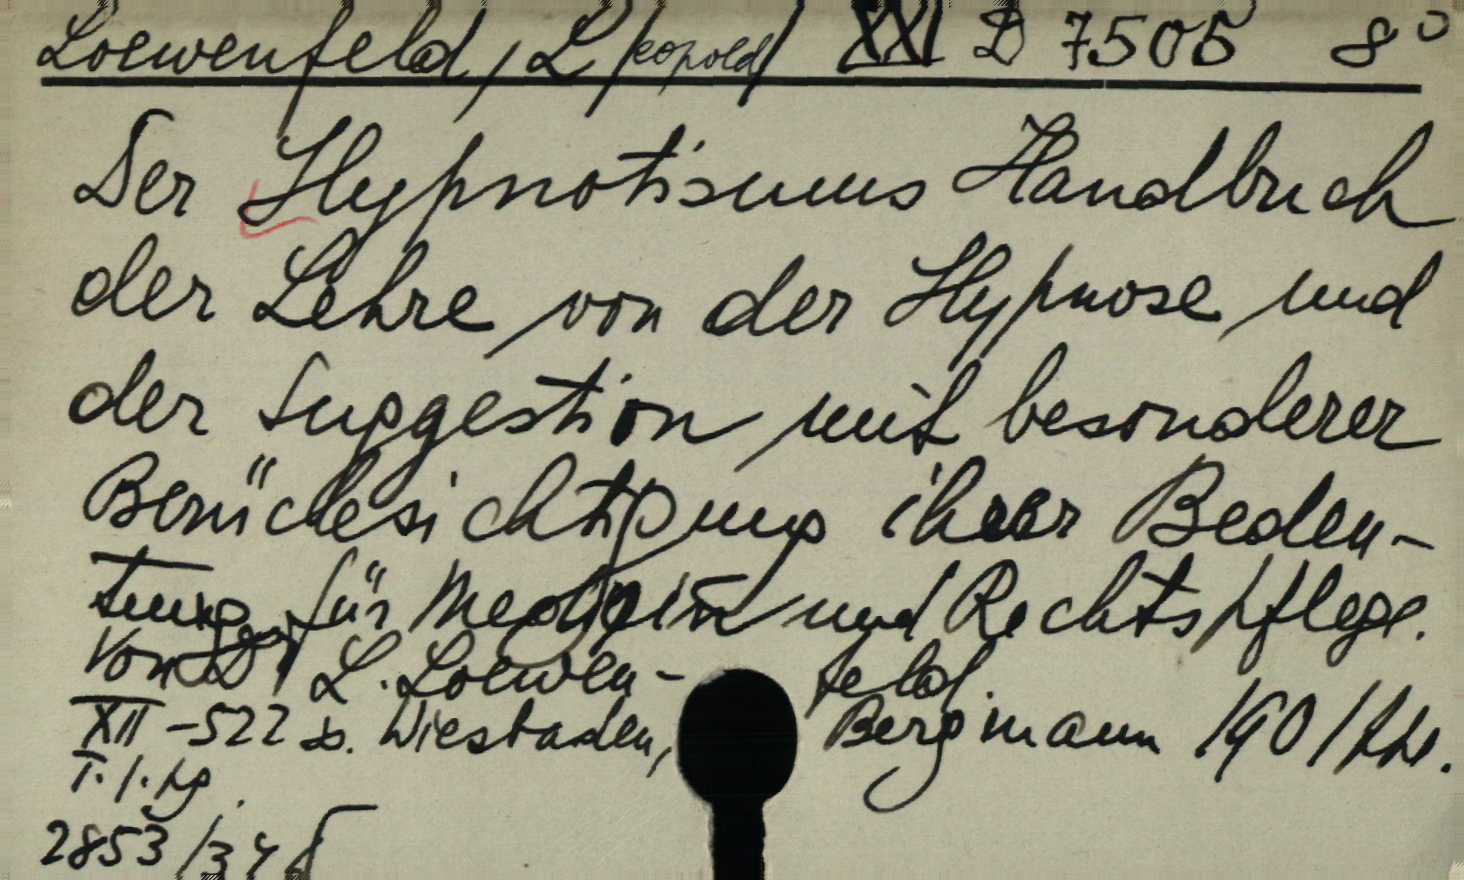 Loewenfeld, L/eopold/ XXI D 7505 8°
Der Hypnotismus Handbuch
der Lehre von der Hypnose und
der Suggestion mit besonderer
Berücksichtigung ihrer Bedeu-
tung für Medizin und Rechtspflege.
Von Dr L. Loewen- feld.
XII - 522 s. Wiesbaden, Bergmann 1901
2853/34